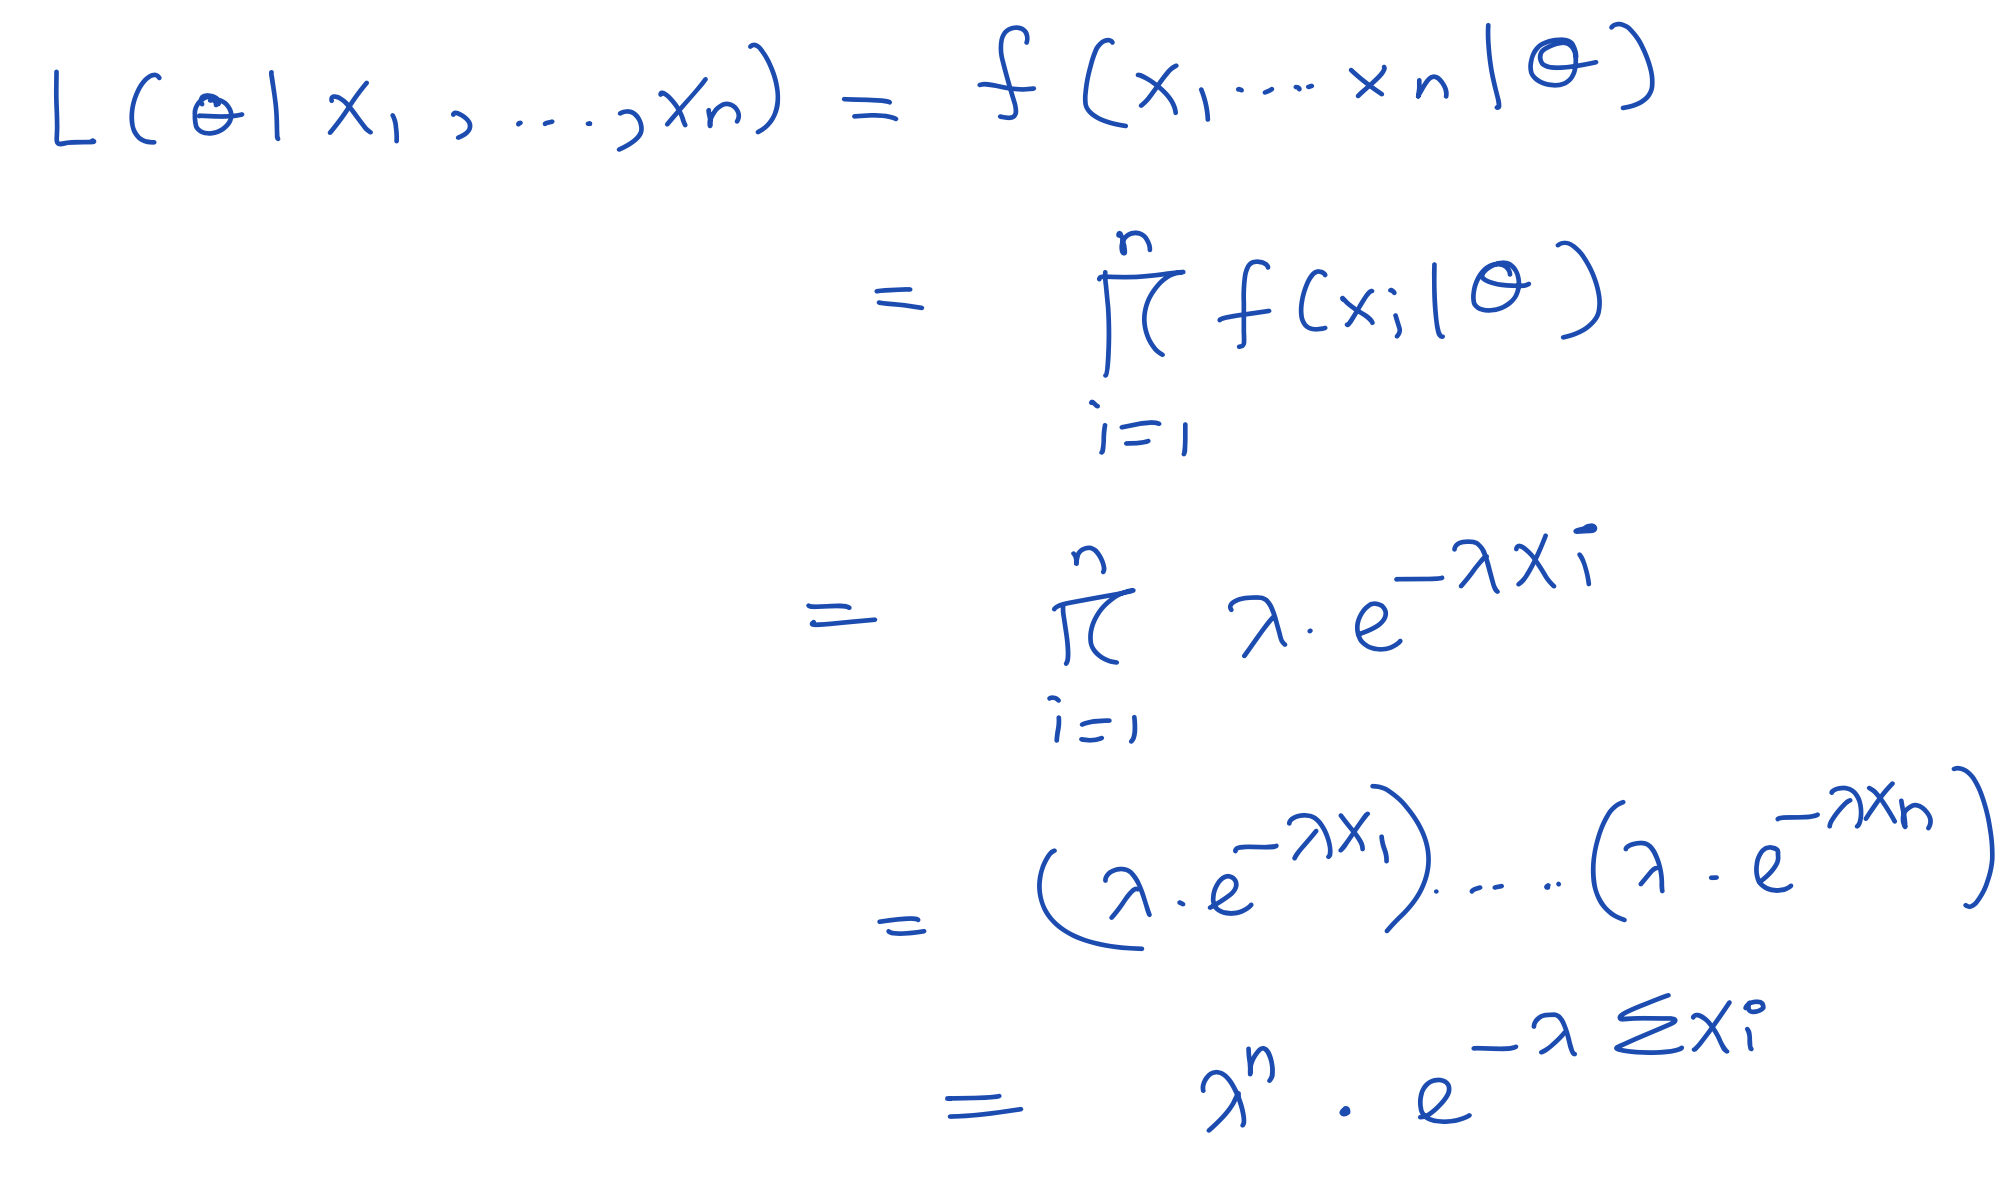 L(θ|x₁, ...., xₙ) = f(x₁.... xₙ|θ)
= ∏ᵢ₌₁ⁿ f(xᵢ|θ)
= ∏ᵢ₌₁ⁿ λ · e^(-λxᵢ)
= (λ · e^(-λx₁)) ..... (λ · e^(-λxₙ))
= λⁿ · e^(-λ Σxᵢ)